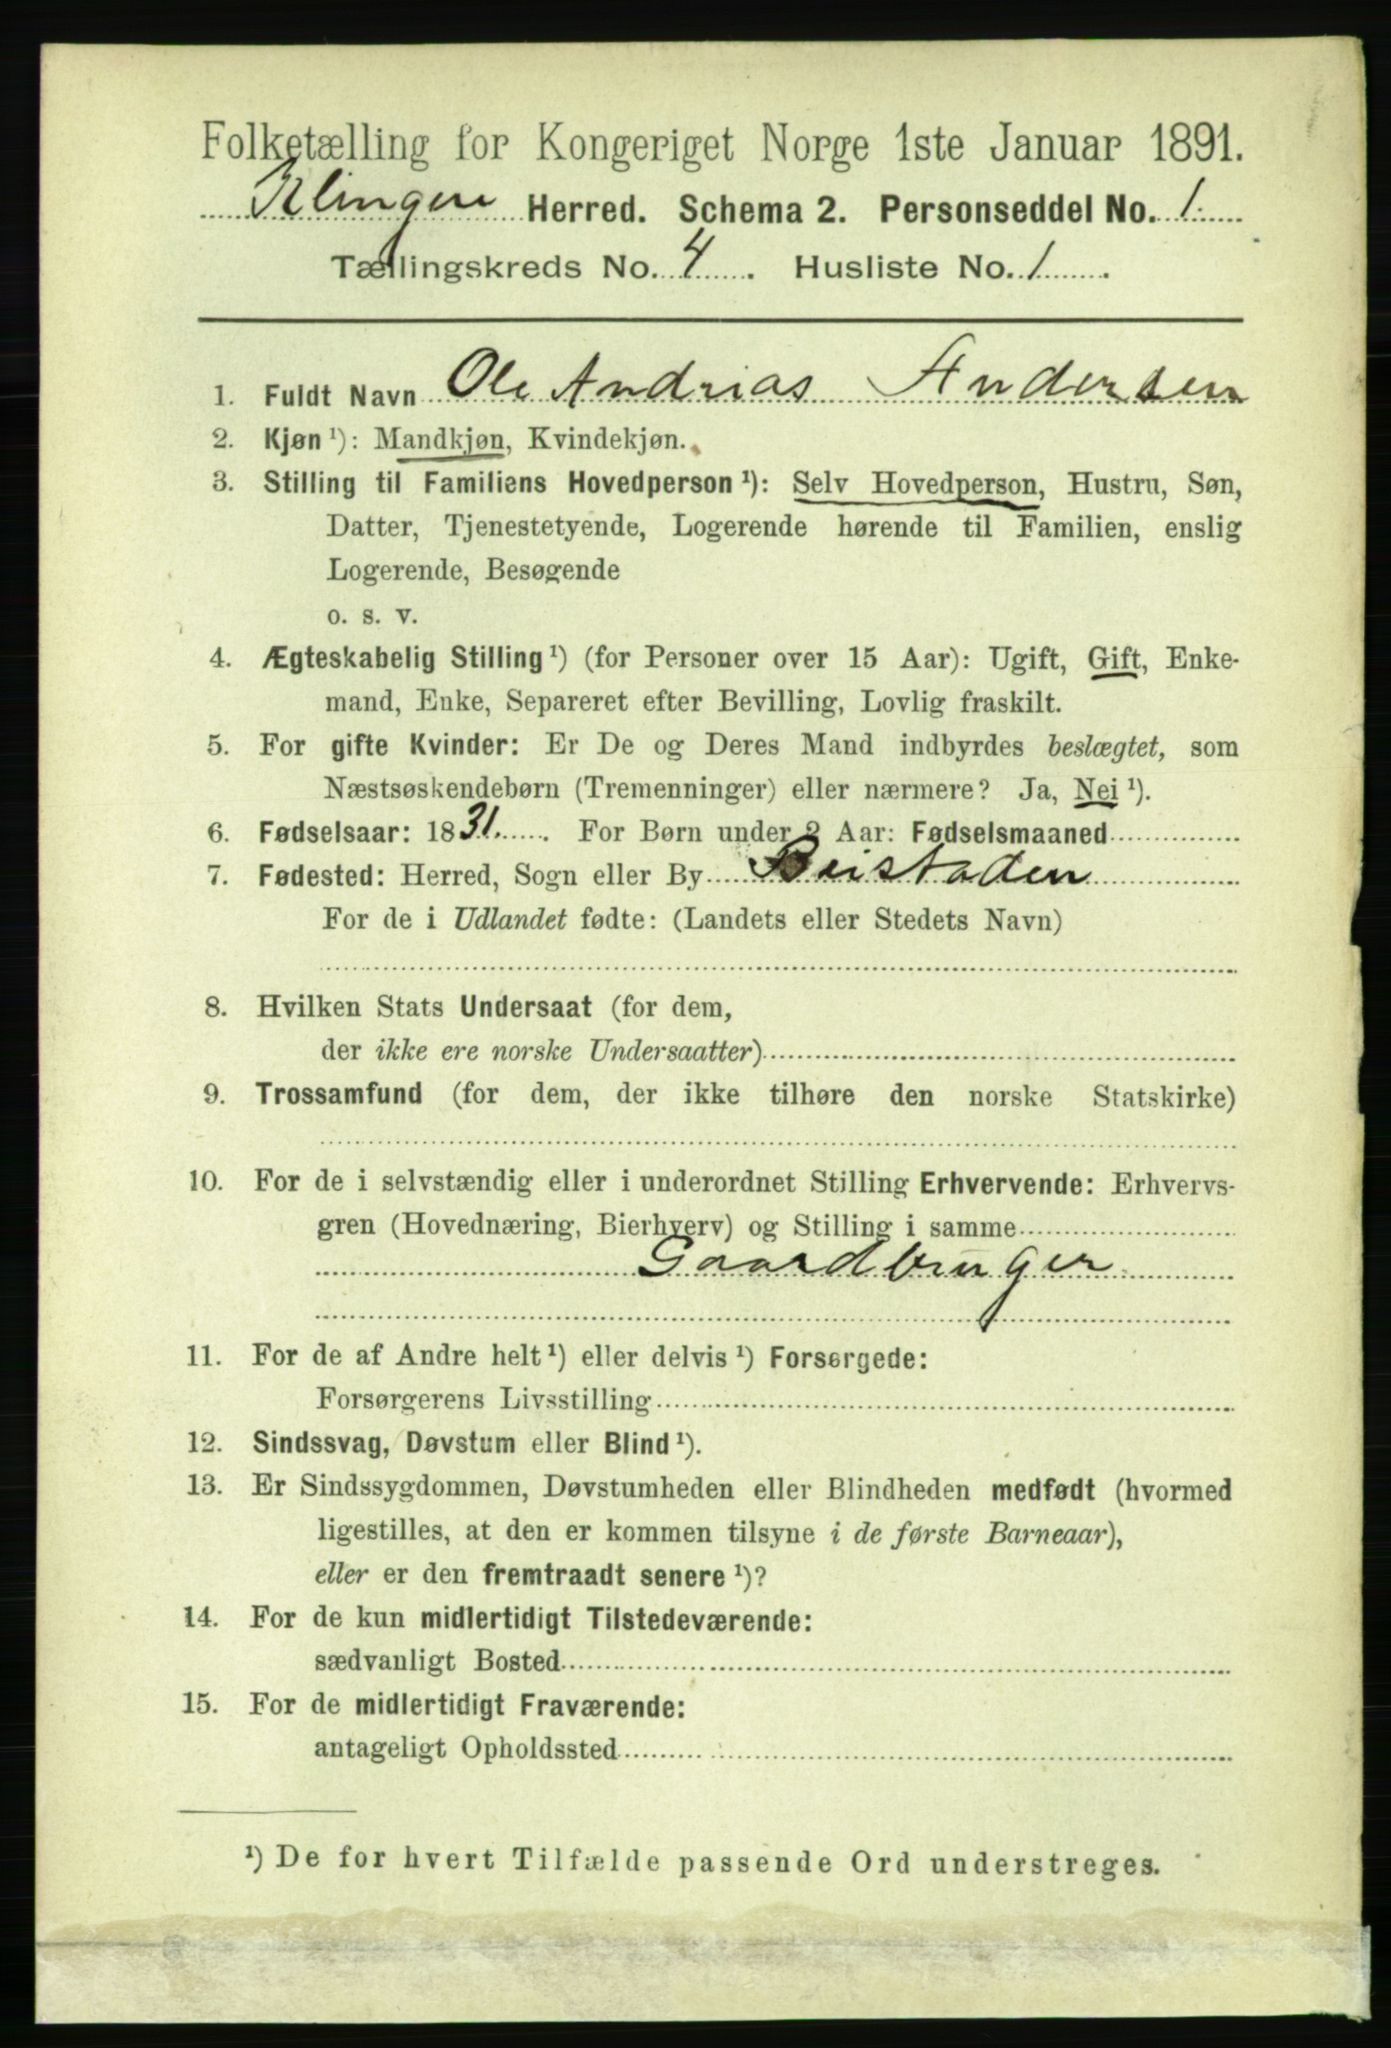 Folketælling for Kongeriget Norge 1ste Januar 1891.
Klingen Herred. Schema 2. Personseddel No. 1
Tællingskreds No. 4. Husliste No. 1.
1. Fuldt Navn Ole Andrias Andersen
2. Kjøn ¹): Mandkjøn, Kvindekjøn.
3. Stilling til Familiens Hovedperson ¹): Selv Hovedperson, Hustru, Søn,
Datter, Tjenestetyende, Logerende hørende til Familien, enslig
Logerende, Besøgende
o. s. v.
4. Ægteskabelig Stilling ¹) (for Personer over 15 Aar): Ugift, Gift, Enke-
mand, Enke, Separeret efter Bevilling, Lovlig fraskilt.
5. For gifte Kvinder: Er De og Deres Mand indbyrdes beslægtet, som
Næstsøskendebørn (Tremenninger) eller nærmere? Ja, Nei ¹).
6. Fødselsaar: 1831. For Børn under 2 Aar: Fødselsmaaned
7. Fødested: Herred, Sogn eller By Beistaden
For de i Udlandet fødte: (Landets eller Stedets Navn)
8. Hvilken Stats Undersaat (for dem,
der ikke ere norske Undersaatter)
9. Trossamfund (for dem, der ikke tilhøre den norske Statskirke)
10. For de i selvstændig eller i underordnet Stilling Erhvervende: Erhvervs-
gren (Hovednæring, Bierhverv) og Stilling i samme
Gaardbruger
11. For de af Andre helt ¹) eller delvis ¹) Forsørgede:
Forsørgerens Livsstilling
12. Sindssvag, Døvstum eller Blind ¹).
13. Er Sindssygdommen, Døvstumheden eller Blindheden medfødt (hvormed
ligestilles, at den er kommen tilsyne i de første Barneaar),
eller er den fremtraadt senere ¹)?
14. For de kun midlertidigt Tilstedeværende:
sædvanligt Bosted
15. For de midlertidigt Fraværende:
antageligt Opholdssted
¹) De for hvert Tilfælde passende Ord understreges.